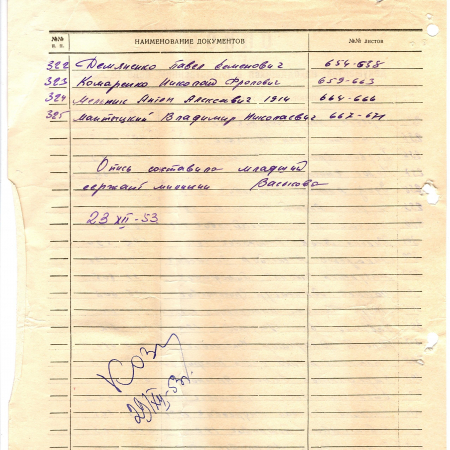 №№ п. п. НАИМЕНОВАНИЕ ДОКУМЕНТОВ №№ листов
322 Демяненко Павел Семенович 654-658
323 Комаренко Николай Фролович 659-663
324 Мельник Антон Алексеевич 1914 664-666
325 Владимир Николаевич 667-671
Опись составила младший
сержант милиции Васькова
23 XII-53
29/XII-53.